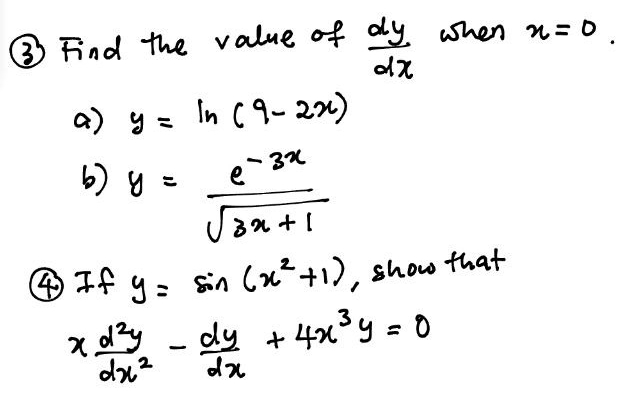 ③ Find the value of dy/dx when x = 0.
a) y = ln (9 - 2x)
b) y = e^(-3x) / √(3x + 1)
④ If y = sin (x² + 1), show that
x d²y/dx² - dy/dx + 4x³y = 0